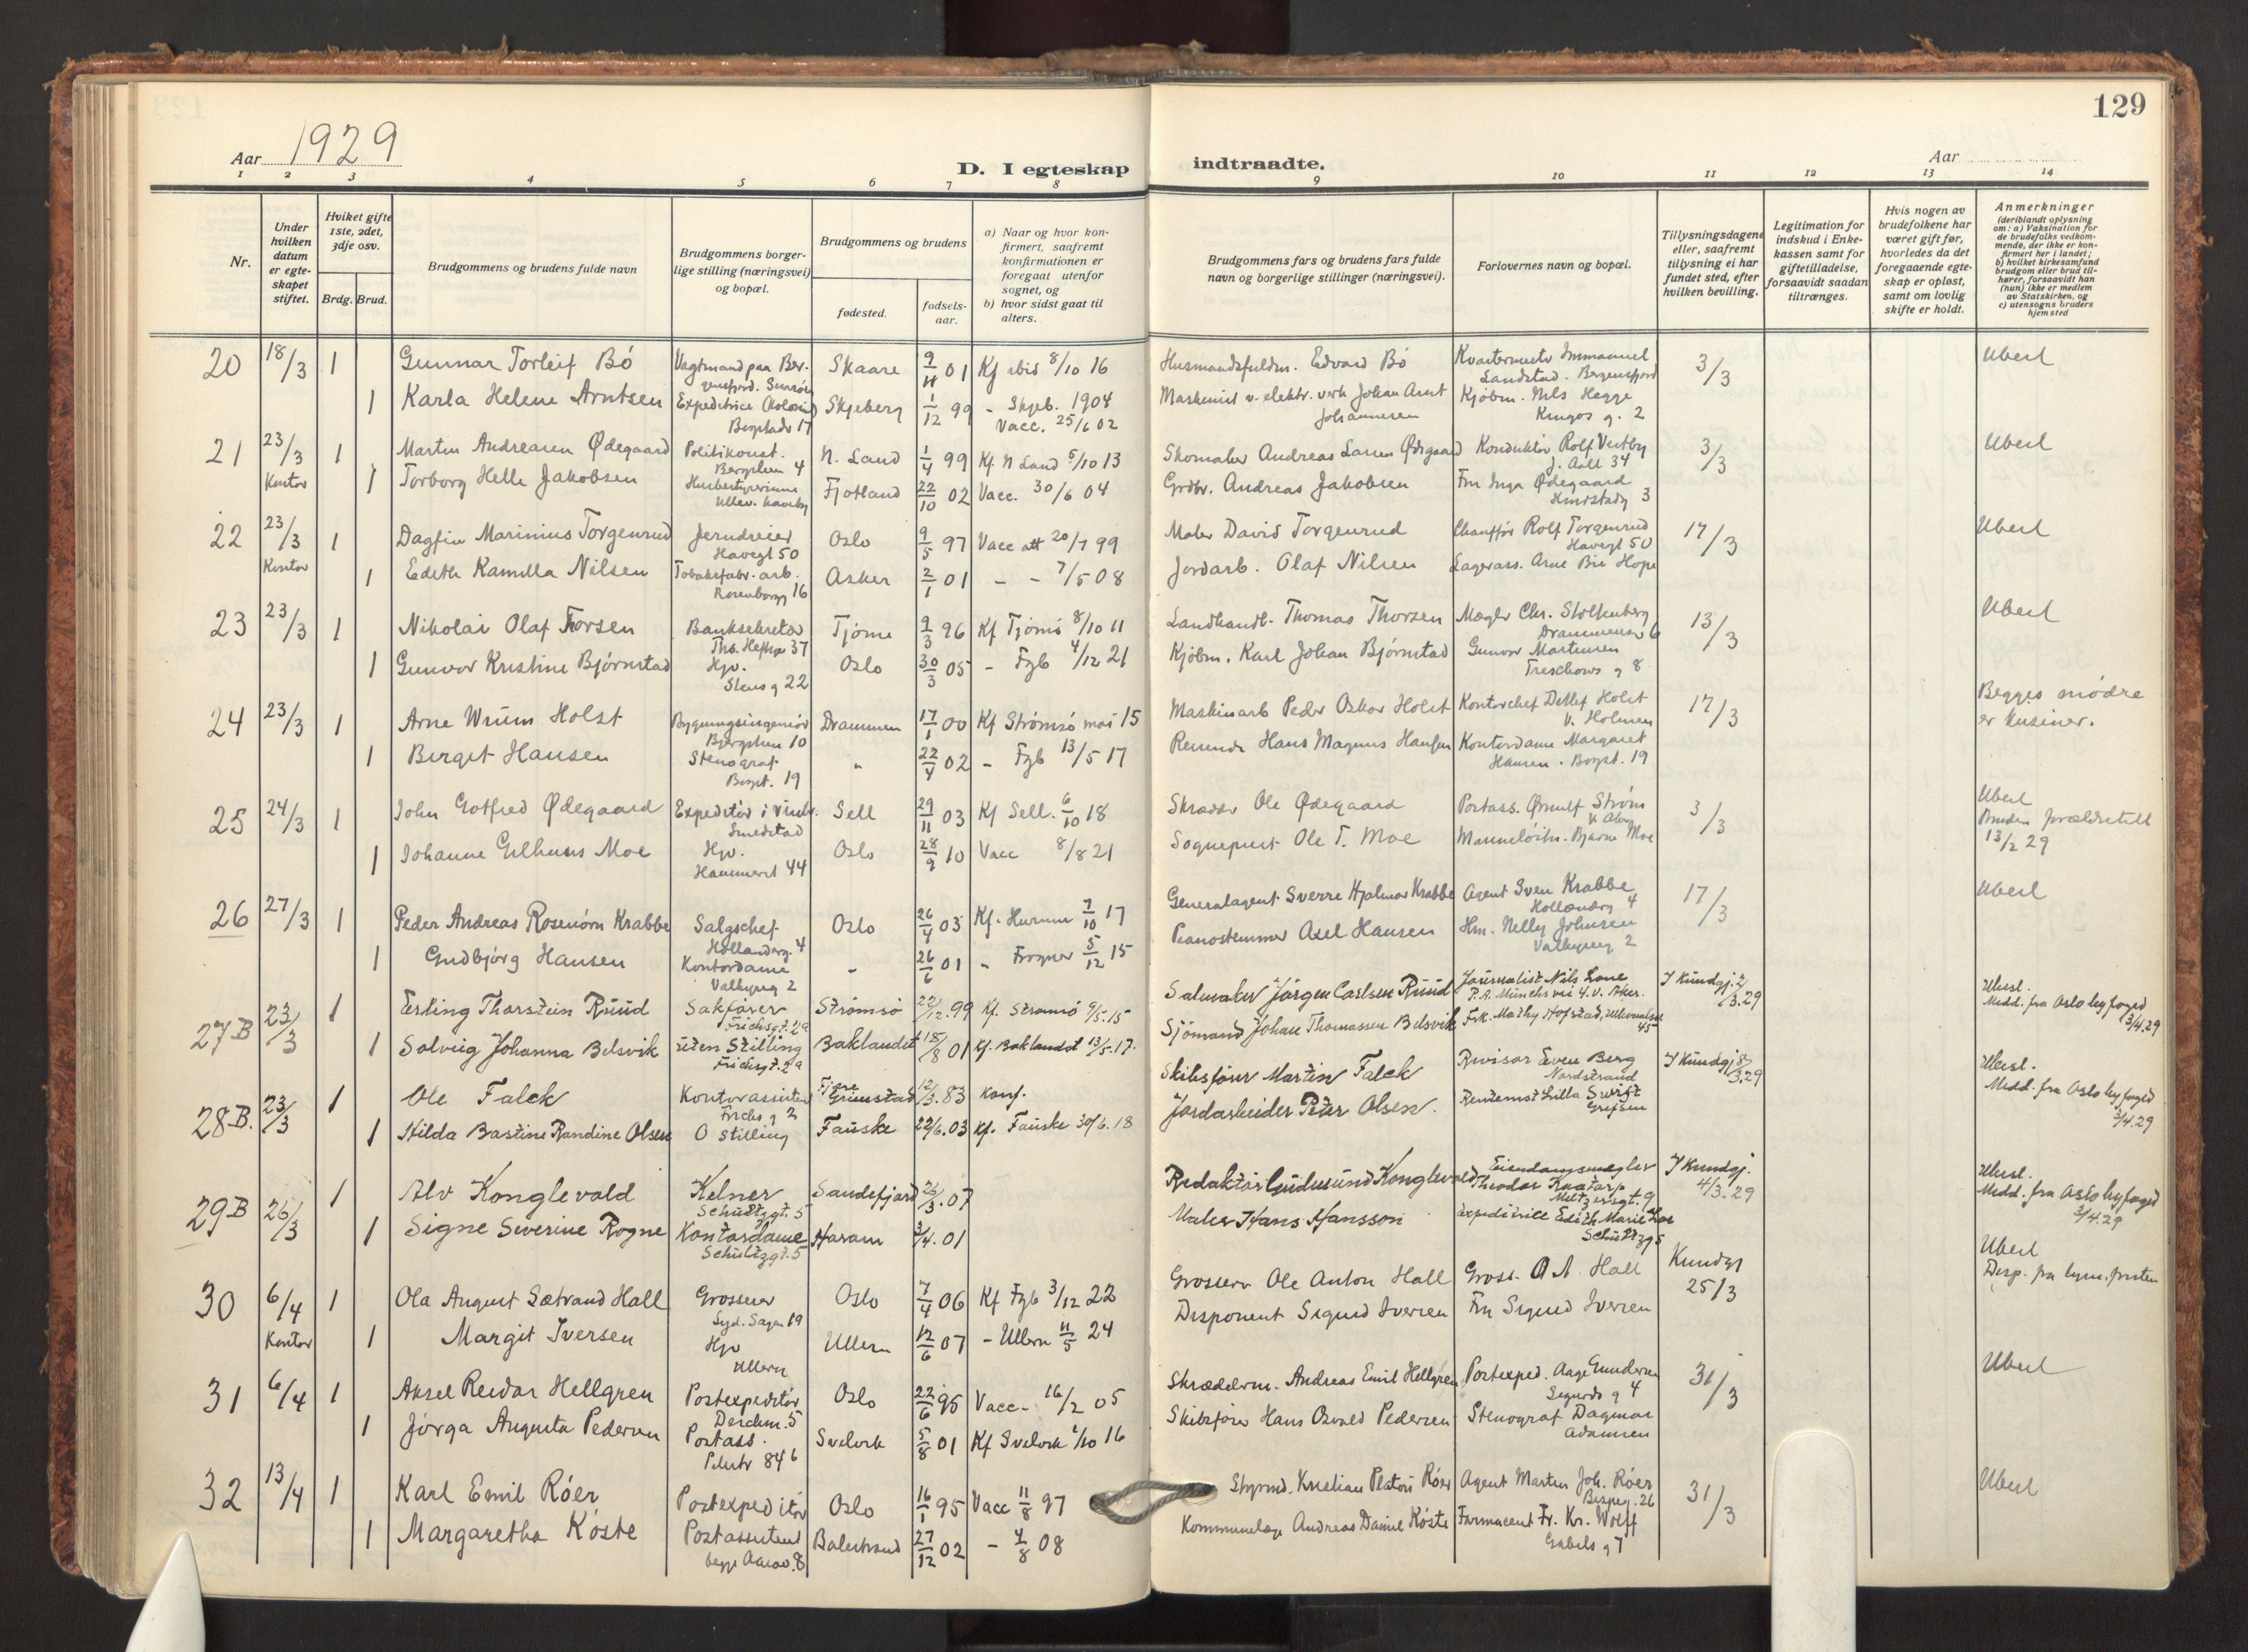 129
Aar 1929
D. I egteskap indtraadte.
Aar
1 2 3 4 5 6 7 8 9 10 11 12 13 14
Nr.
Under
hvilken
datum
er egte-
skapet
stiftet.
Hviket gifte
1ste, 2det,
3dje osv.
Brdg. Brud.
Brudgommens og brudens fulde navn
Brudgommens borger-
lige stilling (næringsvei)
og bopæl.
Brudgommens og brudens
fødested.
fødsels-
aar.
a) Naar og hvor kon-
firmert, saafremt
konfirmationen er
foregaat utenfor
sognet, og
b) hvor sidst gaat til
alters.
Brudgommens fars og brudens fars fulde
navn og borgerlige stillinger (næringsvei).
Forlovernes navn og bopæl.
Tillysningsdagene
eller, saafremt
tillysning ei har
fundet sted, efter
hvilken bevilling.
Legitimation for
indskud i Enke-
kassen samt for
giftetilladelse,
forsaavidt saadan
tiltrænges.
Hvis nogen av
brudefolkene har
været gift før,
hvorledes da det
foregaaende egte-
skap er opløst,
samt om lovlig
skifte er holdt.
Anmerkninger
(deriblandt oplysning
om: a) Vaksination for
de brudefolks vedkom-
mende, der ikke er kon-
firmert her i landet;
b) hvilket kirkesamfund
brudgom eller brud til-
hører, forsaavidt han
(hun) ikke er medlem
av Statskirken, og
c) utensogns bruders
hjemsted
20 18/3 1 Gunnar Torleif Bö Vagtmand paa Ber- Skaare 9/11 01 8/10 16 Edvard Bö Immanuel 3/3 Ubesl
Landstad. Bergensfjord
1 Karla Helene Arntsen Expeditrice Skjeberg 1/12 99 - Skjeb. 1904 Johan Arnt Kjöbm. Nils Hegge
Bogstadv 17 Vacc. 25/6 02 Johannesen Kingos g. 2
21 23/3 1 Martin Andreasen Ødegaard Politikonst. N. Land 1/4 99 Kf. N Land 5/10 13 Skomaker Andreas Larsen Ødegaard Konduktör Rolf Vestby 3/3 Ubesl
Kontor 1 Torborg Helle Jakobsen Fjotland 22/10 02 Vacc. 30/6 04 Grdbr. Andreas Jakobsen Fru Inga Ødegaard
22 23/3 1 Dagfin Marinius Torgenrud Jerndreier Oslo 9/5 97 Vacc att 20/7 99 Maler David Torgenrud Chaufför Rolf Torgenrud 17/3 Ubesl
Havegt 50 Havegt 50
Kontor 1 Edith Kamilla Nilsen Tobaksfabr. arb. Asker 2/1 01 - - 7/5 08 Jordarb. Olaf Nilsen Lagerass. Arne
Rosenborgg 16
23 23/3 1 Nikolai Olaf Thorsen Banksekretær Tjöme 9/3 96 Kf Tjömö 8/10 11 Landhandl. Thomas Thorsen Mægler Chr. Stoltenberg 13/3 Ubesl
Th. Heftyes 37
1 Gunvor Kristine Bjørnstad Hjv. Oslo 30/3 05 - Fgb 4/12 21 Kjöbm. Karl Johan Bjørnstad Gunvor Martinsen
Stens g 22 Treschows g 8
24 23/3 1 Arne Wiium Holst Bygningsingeniör Drammen 17/1 00 Kf Strömsö mai 15 Maskinarb Peder Oskar Holst Kontorchef Detlef Holst 17/3 Begges mödre
V. Holmen er kusiner.
1 Berget Hansen Stenograf " 22/4 02 - Fgb 13/5 17 Reisende Hans Magnus Hansen Kontordame Margaret
Bogst. 19 Hansen. Bogst. 19
25 24/3 1 John Gotfred Ødegaard Expeditör i Sell 29/11 03 Kf Sell. 6/10 18 Skrædder Ole Ødegaard Postass. Ørnulf Ström 3/3 Ubesl
Smedstad
1 Johanne Gilhuus Moe Hjv. Oslo 28/9 10 Vacc 8/8 21 Sogneprest Ole T. Moe Bjarne Moe 13/2 29
Hammerst 44
26 27/3 1 Peder Andreas Rosenörn Krabbe Salgschef Oslo 26/4 03 Kf. Hurum 7/10 17 Generalagent Sverre Hjalmar Krabbe Agent Sven Krabbe 17/3 Ubesl
Hollenderg. 4 Hollenderg 4
1 Gudbjörg Hansen Kontordame - 26/6 01 - Frogner 5/12 15 Pianostemmer Axel Hansen Hm. Nelly Johnsen
Valkyrieg 2 Valkyrieg 2
27B 23/3 1 Erling Thorstein Ruud Sakförer Strömsö 22/12.99 Kf. Strømsø 9/5.15 Salmaker Jørgen Carlsen Ruud Journalist Nils Lone I Kundgj. 2/3.29 Ubesl.
Frichsgt. 29 P.A. Munchs vei 4. V. Aker. Medd. fra Oslo byfoged
1 Solveig Johanna Belsvik uten Stilling Baklandet 18/8 01 Kf. Baklandet 13/5.17. Sjømand Johan Thomassen Belsvik Frk. Mathy Hofstad, Ullevaalsv. 45 3/4.29
Frichsgt. 29
28B. 23/3 1 Ole Falck Kontorassistent Fjære Grimstad 12/3.83 Konf. Skibsförer Martin Falck Revisor Even Berg I Kundgj 8/3.29 Ubesl.
Frichs g 2 Nordstrand Medd. fra Oslo byfoged
1 Hilda Bastine Randine Olsen O stilling Fauske 22/6.03 Kf. Fauske 30/6.18 Jordarbeider Peter Olsen. Rentenist Lilla Swift 3/4.29
Grefsen
29B 26/3 1 Alv Konglevold Kelner Sandefjord 23/3.07 Redaktør Gudmund Konglevold Eiendomsmegler I Kundgj. Ubesl.
Schultzgt. 5 Theodor Kaatorp 4/3.29 Medd. fra Oslo byfoged
Meltzersgt. 9 3/4.29
1 Signe Severine Rogne Kontordame Haram 3/4.01 Maler Hans Hansson Expeditrice Edith Marie
Schultzgt. 5 Schultzg 5
30 6/4 1 Ola August Sætrand Hall Grosserer Oslo 7/4 06 Kf Fgb 3/12 22 Grosserer Ole Anton Hall Gross. O A. Hall Kundgj 25/3 Ubesl
Syd. Sagen 19 Disp. fra
Kontor 1 Margit Iversen Hjv Ullern 12/6 07 - Ullern 11/5 24 Disponent Sigurd Iversen Fru Sigurd Iversen
Ullern
31 6/4 1 Aksel Reidar Hellgren Postexpeditör Oslo 22/6 95 Vacc. 16/2 05 Skrædderm. Andreas Emil Hellgren Postexped. Aage Gundersen 31/3 Ubesl
Deichm. 5 Sigurds g 4
1 Jörga Augusta Pedersen Postass. Svelvik 5/8 01 Kf Svelvik 1/10 16 Skibsförer Hans Osvald Pedersen Stenograf Dagmar
Pilestr 84 b Adamsen
32 13/4 1 Karl Emil Röer Postexpeditör Oslo 16/1 95 Vacc 11/8 97 Styrmd. Kristian Platou Röer Agent Martin Joh. Röer 31/3 Ubesl
Bispeg. 26
1 Margaretha Köste Postassistent Balestrand 27/12 02 - 4/8 08 Kommunelæge Andreas Daniel Köste Farmaceut Fr. Kr. Wolff
begge 8 Gabels g 7